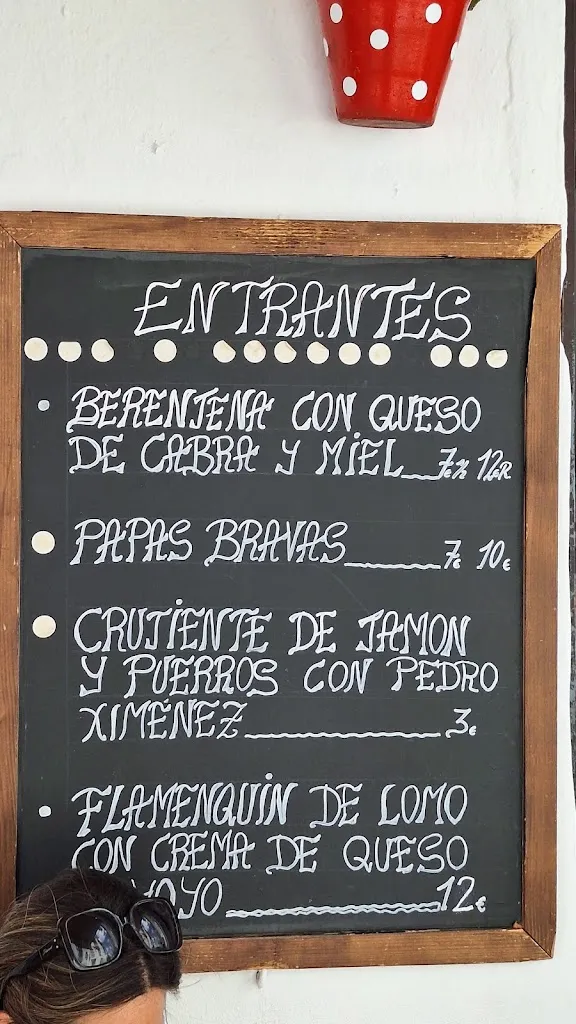 ENTRANTES
BERENJENA CON QUESO
DE CABRA Y MIEL 7€½ 12€R
PAPAS BRAVAS 7€ 10€
CRUJIENTE DE JAMON
Y PUERROS CON PEDRO
XIMÉNEZ 3€
FLAMENQUIN DE LOMO
CON CREMA DE QUESO
12€